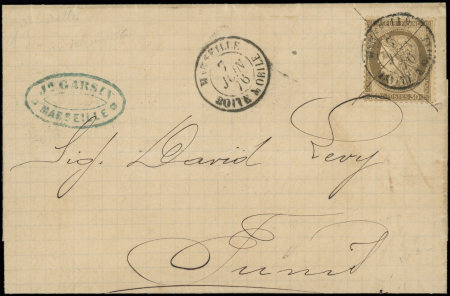 Jh GARSIN
MARSEILLE
MARSEILLE
7
JUIN
76
BOITE MOBILE
POSTES 30
Sig. David Levy
Tunis